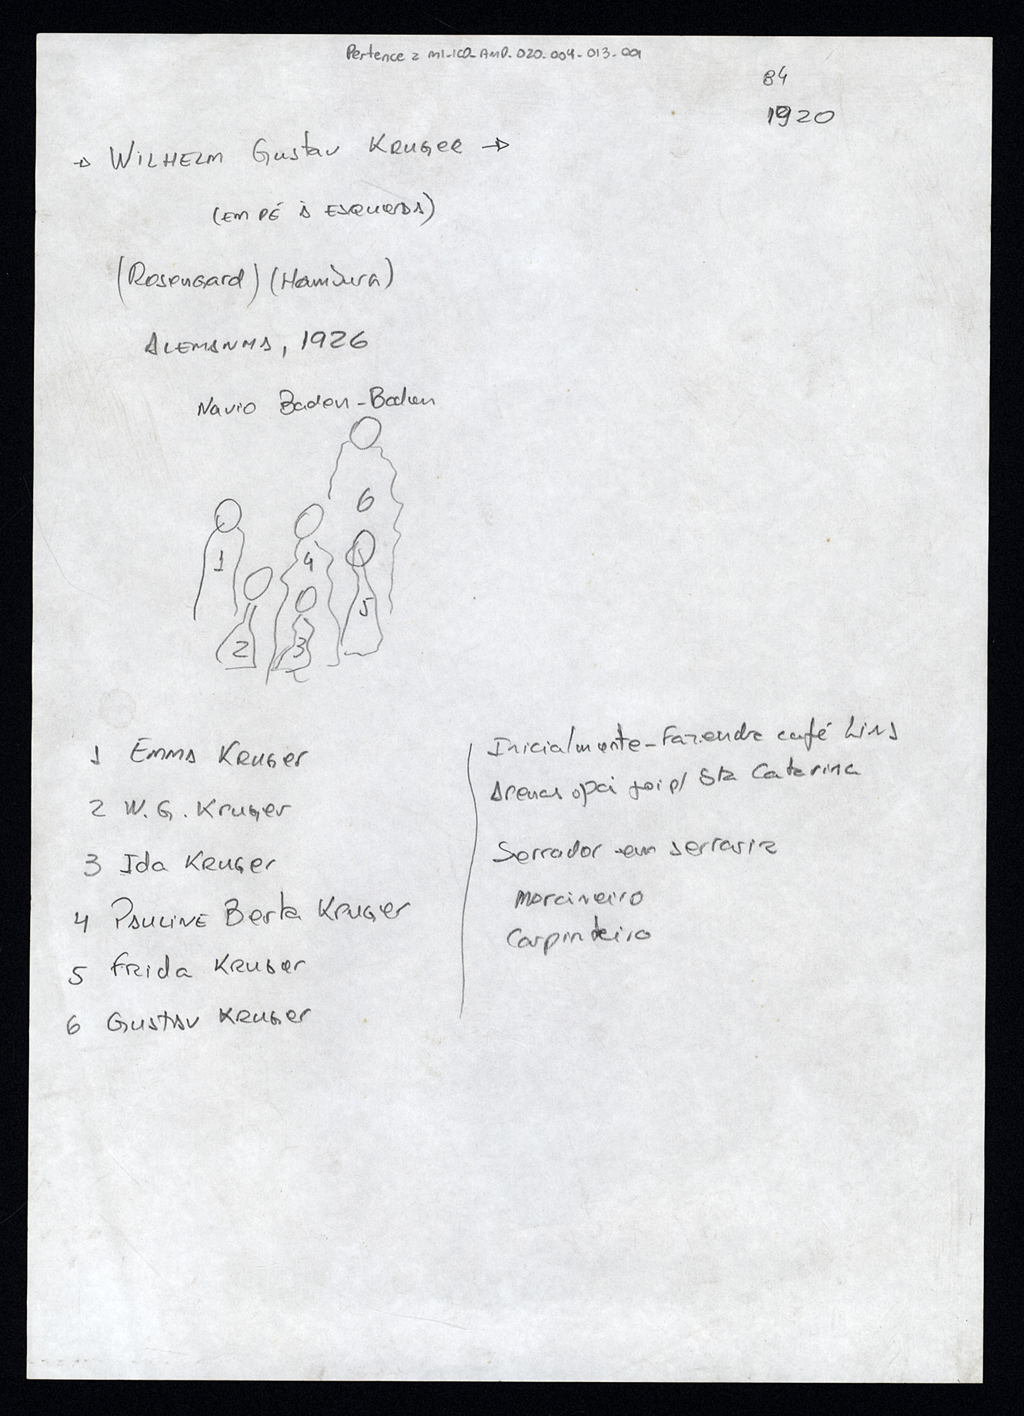 Pertence a MI-ICO-AMP-020-004-013-001
84
1920
→ WILHELM Gustav KRUGER →
(EM PÉ À ESQUERDA)
(Rosengard) (Hamburg)
ALEMANHA, 1926
Navio Baden-Baden
6
1
4
5
2
3
1 EMMA KRUGER
2 W. G. KRUGER
3 Ida KRUGER
4 PAULINE Berta KRUGER
5 FRIDA KRUGER
6 GUSTAV KRUGER
Inicialmente - Fazenda café Lins
Apenas o pai foi p/ Sta Catarina
Serrador em serraria
Marcineiro
Carpinteiro